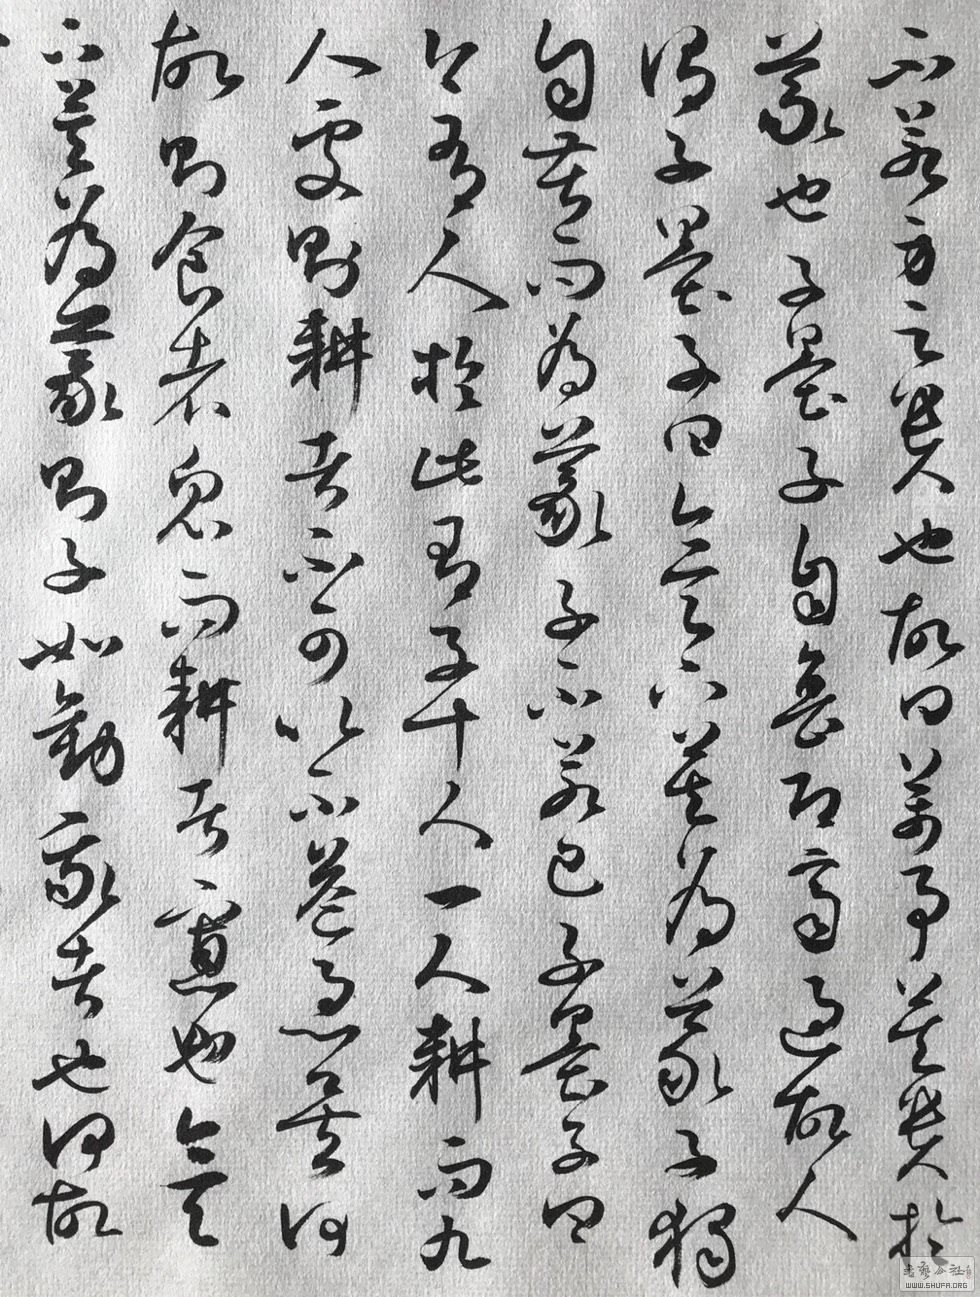 不若身之貴也故曰萬事莫貴於
義也子墨子自魯即齊過故人
謂子墨子曰今天下莫為義子獨
自苦而為義子不若已子墨子曰
今有人於此有子十人一人耕而九
人處則耕者不可以不益急矣何
故則食者眾而耕者寡也今天
下莫為義則子如勸我者也何故
書藝公社
WWW.SHUFA.ORG